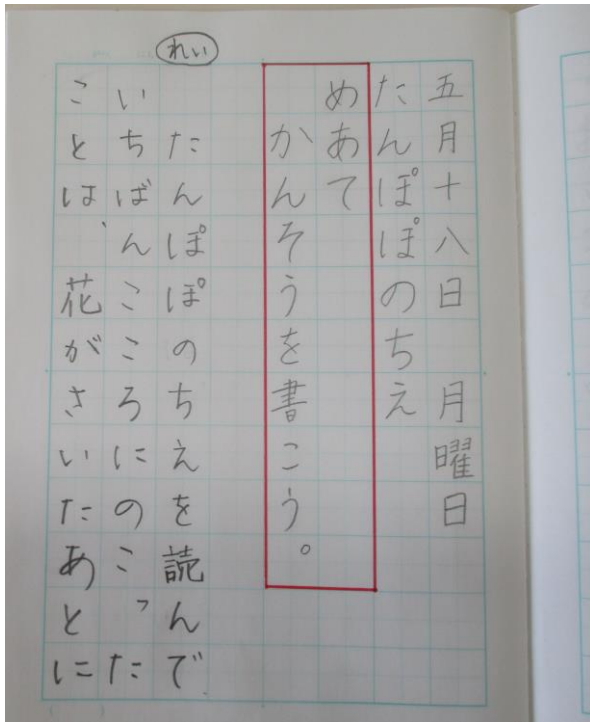 五月十八日　月曜日
たんぽぽのちえ
めあて
かんそうを書こう。
れい
たんぽぽのちえを読んで
いちばんこころにのこった
ことは、花がさいたあとに